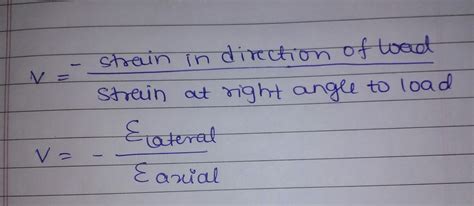 ν = - strain in direction of load / strain at right angle to load
ν = - εlateral / εaxial